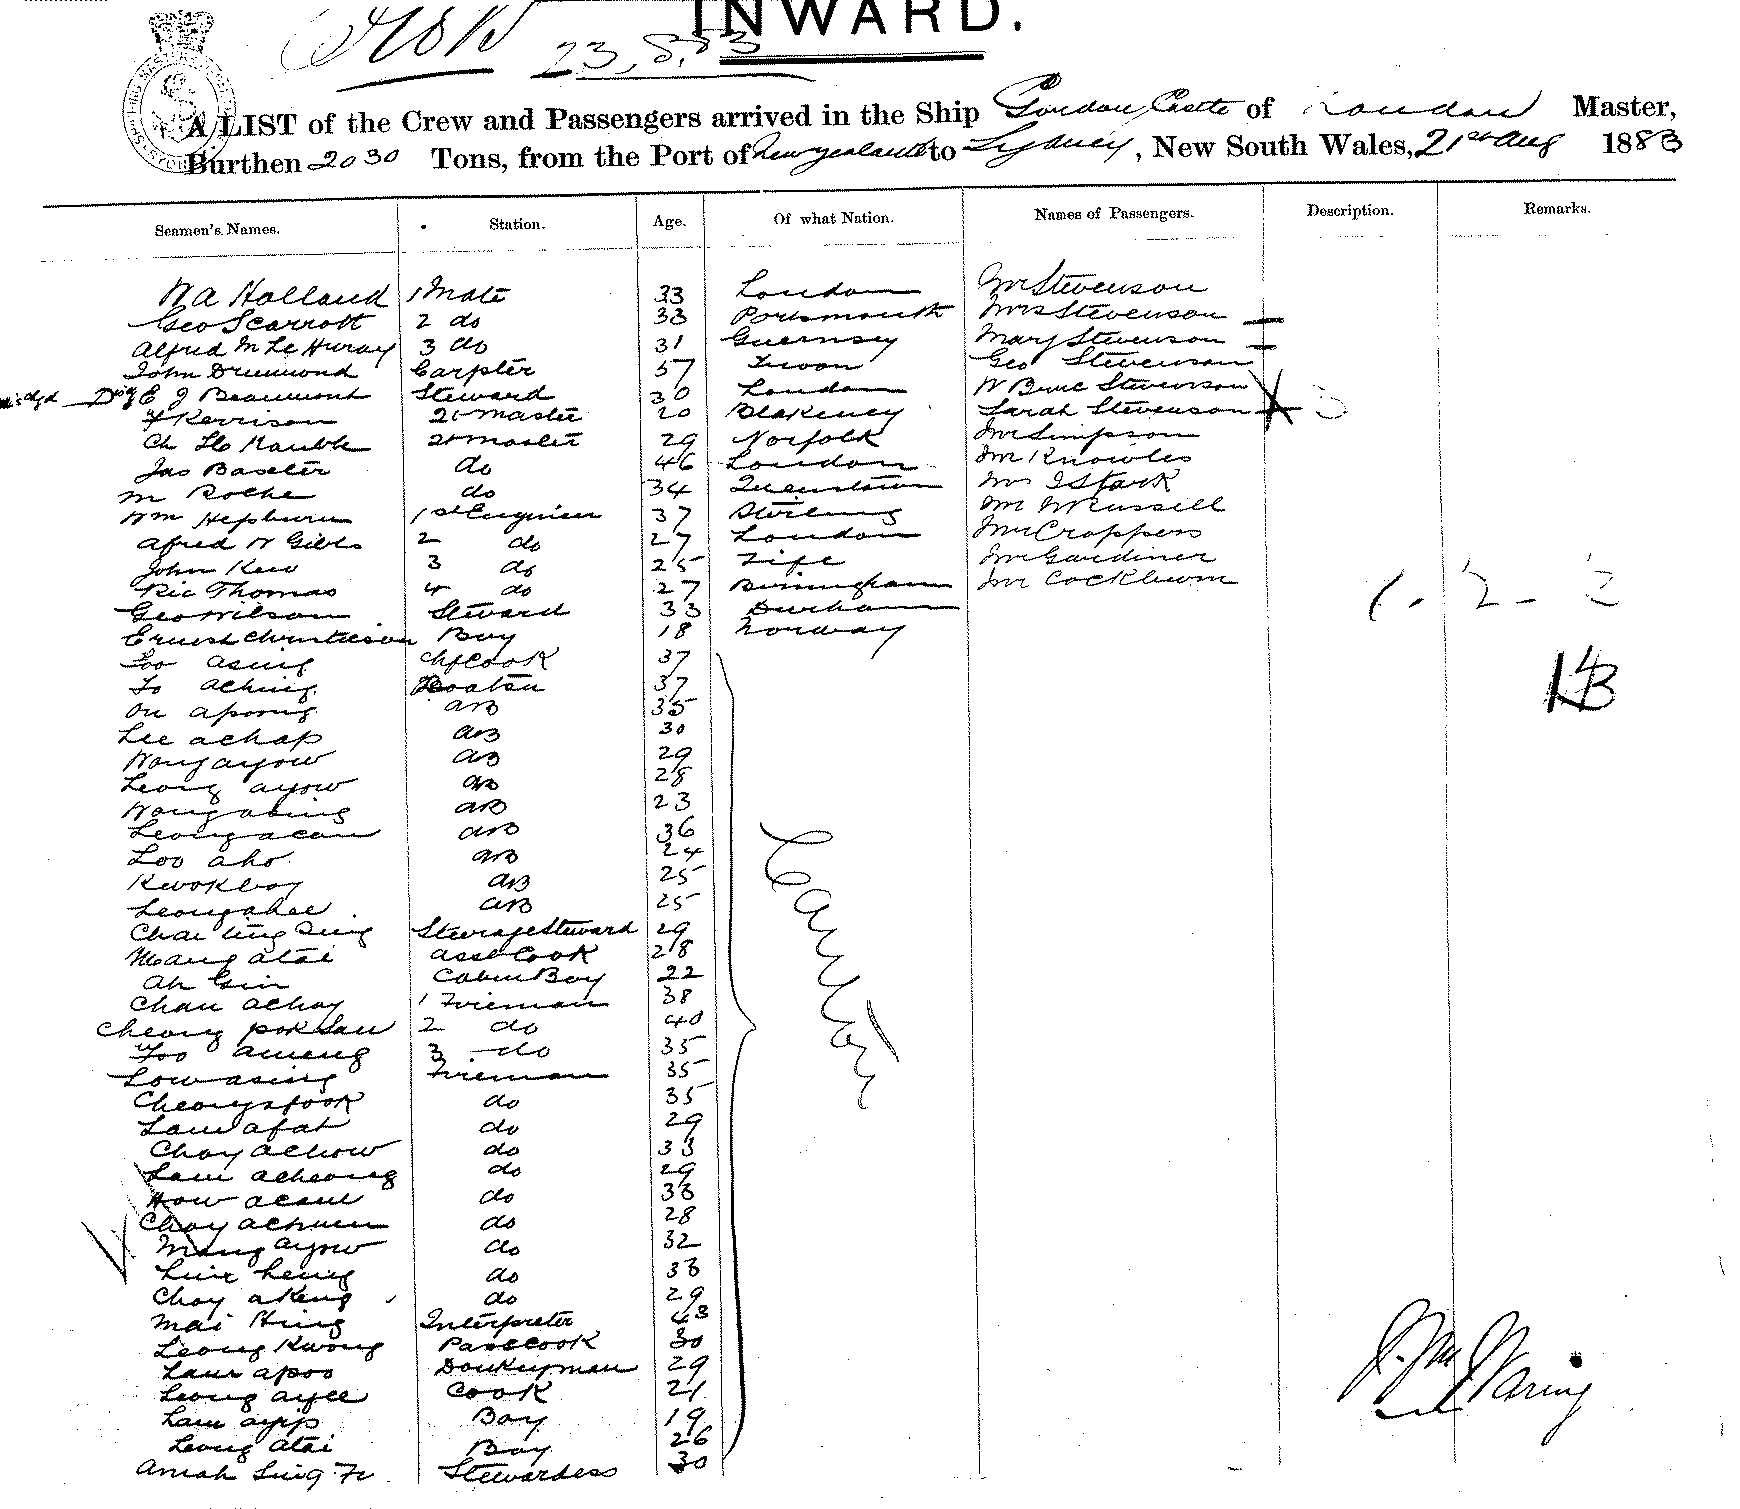 INWARD.
23.8.83
A LIST of the Crew and Passengers arrived in the Ship Gordon Castle of London Master,
Burthen 2030 Tons, from the Port of to Sydney, New South Wales, 21st Aug 1883
Seamen's Names. Station. Age. Of what Nation. Names of Passengers. Description. Remarks.
W A Holland 1 Mate 33 London Mr Stevenson
Geo Scarrott 2 do 33 Portsmouth Mrs Stevenson
Alfred M Le Huray 3 do 31 Guernsey Mary Stevenson
John Drummond Carpter 57 Geo Stevenson
E J Beaumont Steward 30 London W Bruce Stevenson
F Kerrison 20 Blakeney Sarah Stevenson 3
Ch 29 Norfolk Mr Simpson
Jas Baxter do 46 London Mr Knowles
M Roche do 34 Queenstown J Stark
Wm Hepburn 1st Enginier 37 Stirling Mr W Russell
Afred W Gibbs 2 do 27 London Mr Croppers
John Kew 3 do 25 Fife Mr Gardiner
Ric Thomas 4 do 27 Birmingham Mr Cockburn
Geo Wilson Steward 33 Durham
Ernest Boy 18 Norway
asing Chf Cook 37
To aching Boatsn 37
apong AB 35
Lee achap AB 30
Wong ayow AB 29
Leong ayow AB 28
Wong asing AB 23
Leong acan AB 36
Loo aho AB 24
Kwok boy AB 25
Leong ahee AB 25
Chai ting Sing Steerage Steward 29
atai asst Cook 28
Ah Gin Cabin Boy 22
Chau achoy 1 Fireman 38
Cheong pok Sau 2 do 40
Foo ameng 3 do 35
Low asing Fireman 35
Cheong spook do 35
Lam afat do 29
Choy achow do 33
Lam acheong do 29
How acam do 38
Choy achuen do 28
ayow do 32
heng do 38
Choy akeng do 29
Mai Hing Interpreter 43
Leong Kwong Pass Cook 30
Lam apoo Donkeyman 29
Leong ayee Cook 21
Lam ayip Boy 19
Leong atai Boy 26
Amah Sing Fr Stewardess 30
Canton